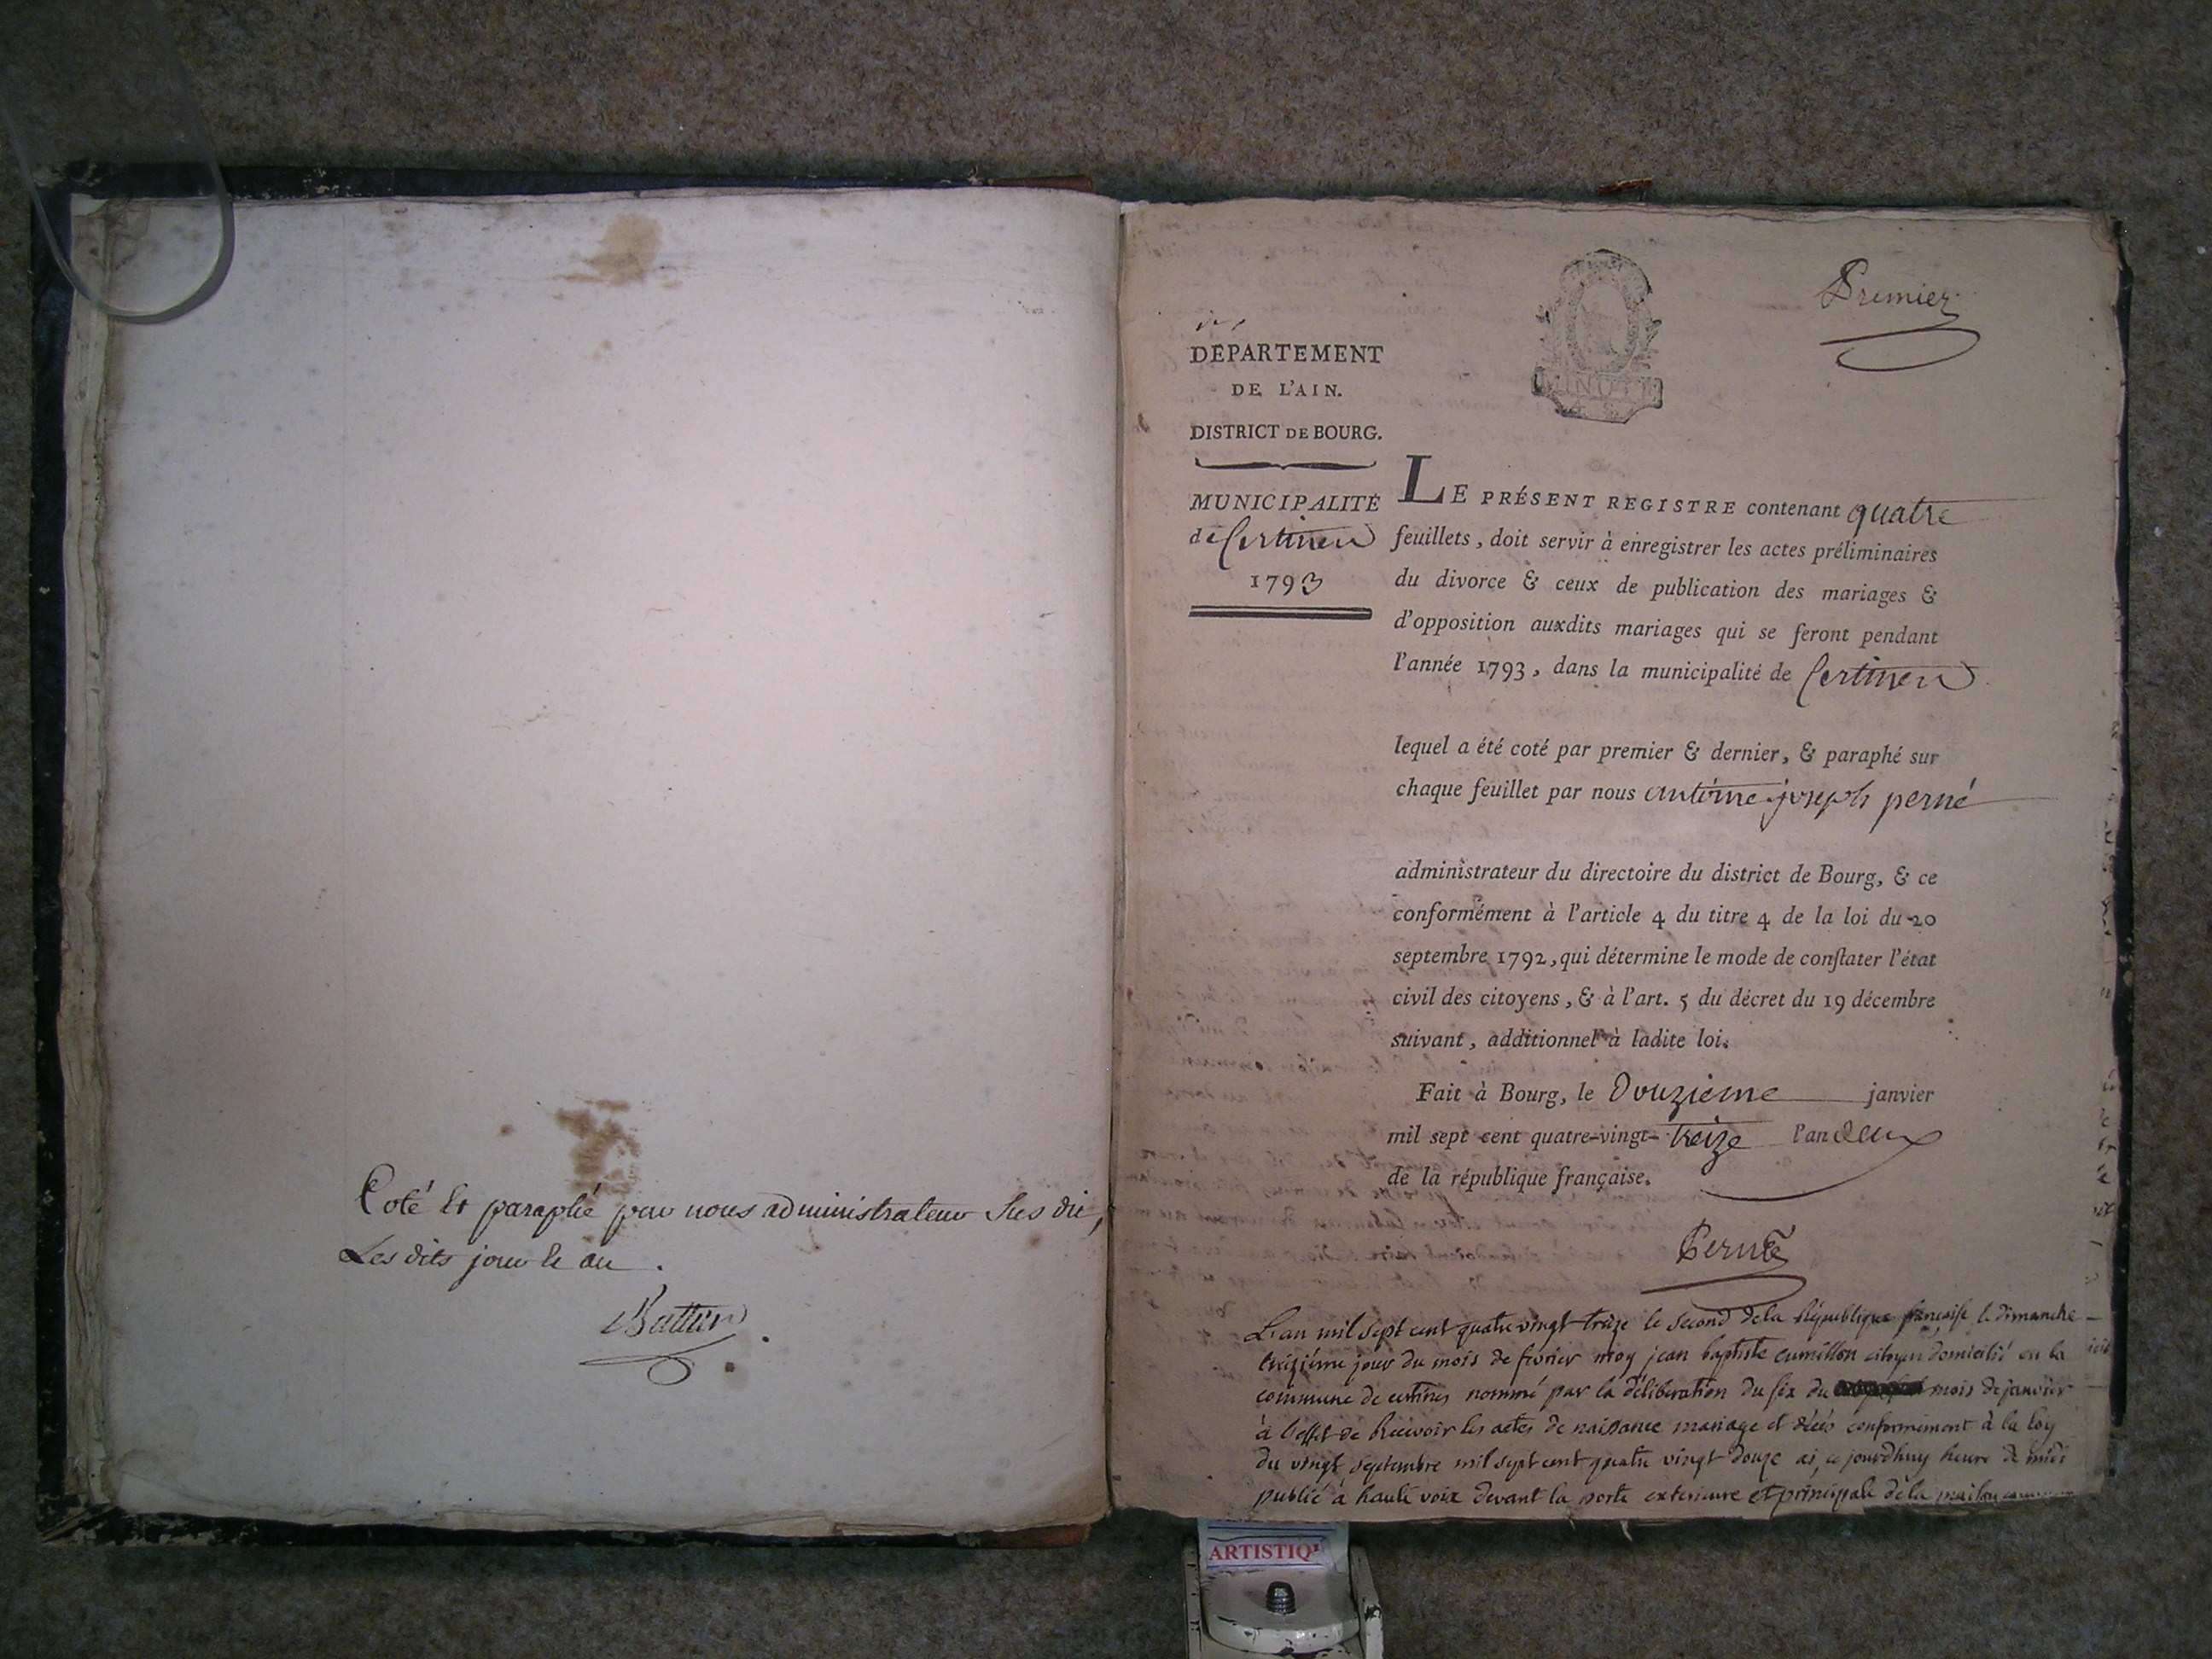 Coté et paraphé par nous administrateur sus dit,
Les dits jour et an.
Premier
DÉPARTEMENT
DE L'AIN.
DISTRICT DE BOURG.
MUNICIPALITÉ
de Certines
1793
LE PRÉSENT REGISTRE contenant quatre
feuillets, doit servir à enregistrer les actes préliminaires
du divorce & ceux de publication des mariages &
d'opposition auxdits mariages qui se feront pendant
l'année 1793, dans la municipalité de Certines
lequel a été coté par premier & dernier, & paraphé sur
chaque feuillet par nous antoine joseph perné
administrateur du directoire du district de Bourg, & ce
conformément à l'article 4 du titre 4 de la loi du 20
septembre 1792, qui détermine le mode de conſtater l'état
civil des citoyens, & à l'art. 5 du décret du 19 décembre
suivant, additionnel à ladite loi.
Fait à Bourg, le Douzieme janvier
mil sept cent quatre-vingt-treize l'an deux
de la république française.
Perné
L'an mil sept cent quatre vingt treize le second de la République françoise le dimanche
jour du mois de fevrier moy jean baptiste cumillon citoyen domicilié en la
commune de certines nommé par la délibération du six du mois de janvier
à l'effet de Recevoir les actes de naissance mariage et décés conformément à la loy
du vingt septembre mil sept cent quatre vingt douze ai, ce jourdhuy heure de midi
publié à haute voix devant la porte exterieure et principale de la maison
ARTISTIQ